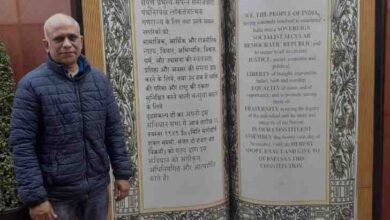 संपूर्ण प्रभुत्व-संपन्न समाजवादी
पंथनिरपेक्ष लोकतंत्रात्मक
गणराज्य बनाने के लिए तथा उसके समस्त
नागरिकों को:
सामाजिक, आर्थिक और राजनैतिक
न्याय, विचार, अभिव्यक्ति, विश्वास,
धर्म और उपासना की स्वतंत्रता,
प्रतिष्ठा और अवसर की समता
प्राप्त
करने के लिए, तथा उन सब में व्यक्ति
की गरिमा और राष्ट्र की एकता
सुनिश्चित करने वाली बन्धुता बढ़ाने
के लिए
दृढ़संकल्प हो कर अपनी इस
संविधान सभा में आज तारीख
नवम्बर
को एतद् द्वारा इस
संविधान को अंगीकृत
अधिनियमित और आत्मार्पित
करते हैं
WE, THE PEOPLE OF INDIA,
having solemnly resolved to constitute
India into a SOVEREIGN
SOCIALIST SECULAR
DEMOCRATIC REPUBLIC and
to secure to all its citizens
JUSTICE, social, economic and
political;
LIBERTY of thought, expression,
belief, faith and worship;
EQUALITY of status and of
opportunity; and to promote among
them all
FRATERNITY assuring the dignity
of the individual and the unity and
integrity of the Nation;
IN OUR CONSTITUENT
ASSEMBLY this twenty-sixth day
of November, 1949, do HEREBY
ADOPT, ENACT AND GIVE TO
OURSELVES THIS
CONSTITUTION.